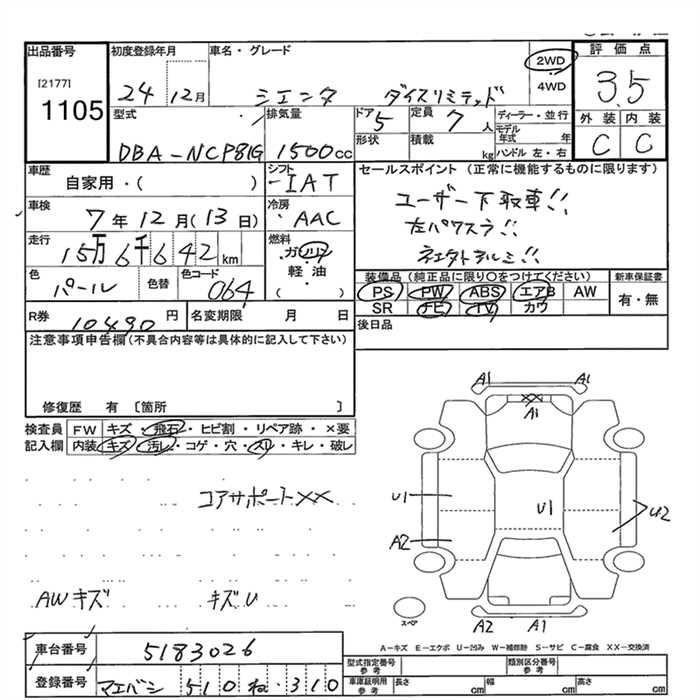 出品番号
[2177]
1105
初度登録年月
24年 12月
車名・グレード
シエンタ ダイスリミテッド
2WD
4WD
評価点
3.5
外装 内装
C C
型式
DBA-NCP81G
排気量
1500cc
ドア 5
形状
定員 7人
積載 kg
ディーラー・並行
モデル年式 年
ハンドル 左・右
車歴
自家用・( )
シフト
IAT
セールスポイント (正常に機能するものに限ります)
ユーザー下取車!!
左パワスラ!!
車検
7年12月(13日)
冷房
AAC
走行
15万6千642km
燃料
ガソリン
軽油
( )
色
パール
色替
色コード
064
装備品 (純正品に限り○をつけてください)
PS PW ABS エアB AW
SR TV カワ
新車保証書
有・無
R券
10490円
名変期限 月 日
後日品
注意事項申告欄(不具合内容等は具体的に記入して下さい)
修復歴 有 〔箇所 〕
検査員記入欄
FW キズ・飛石・ヒビ割・リペア跡・×要
内装 キズ・汚レ・コゲ・穴・スリ・キレ・破レ
A1 A1
XX
A1
U1 U1 U2
A2
コアサポートXX
AWキズ キズU
スペア
A2 A1
A−キズ E−エクボ U−凹み W−補修跡 S−サビ C−腐食 XX−交換済
車台番号
5183026
登録番号
マエバシ 510 ね・310
型式指定番号
参考
類別区分番号
参考
車庫証明用
参考
長さ cm 幅 cm 高さ cm